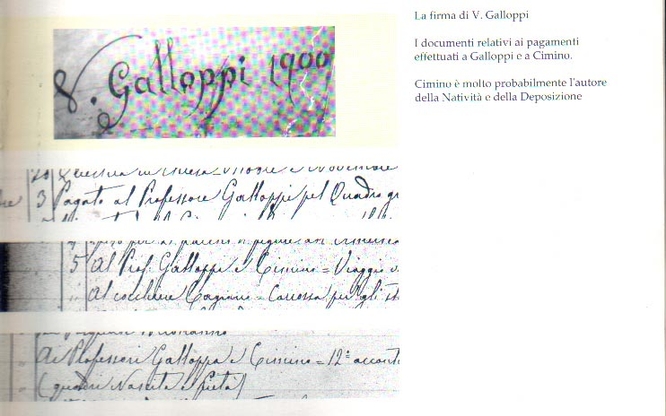 V. Galloppi 1900
La firma di V. Galloppi
I documenti relativi ai pagamenti
effettuati a Galloppi e a Cimino.
Cimino è molto probabilmente l'autore
della Natività e della Deposizione
3 Pagato al Professore Galloppi pel Quadro
5 Al Prof. Galloppi e Cimino = Viaggio
Al cocchiere = Carrozza per gli
Ai Professori Galloppi e Cimino = 12ª
(quadri Nascita e Pietà)